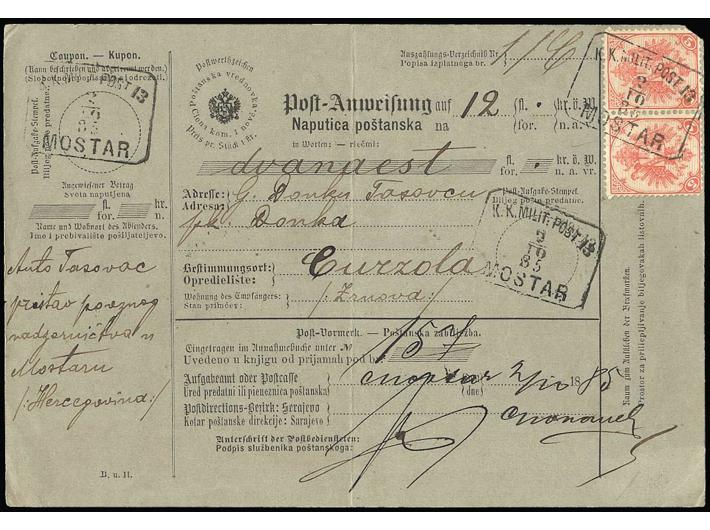 Coupon. — Kupon.
(Kann beschrieben und abgetrennt werden.)
MILIT. POST 13
2
10
85
MOSTAR
Post-Aufgabe-Stempel.
Biljeg pošte predatne.
Angewiesener Betrag
Svota naputjena
fl. kr.
for. n.
Name und Wohnort des Absenders.
Ime i prebivalište pošiljateljevo.
Anto Tasovac
pristav
nadzornictva u
Mostaru
/:Hercegovina:/
B. u. H.
Postwerthzeichen
Poštanska vrednovka
Preis pr. Stück 1 kr.
Ciena kom. 1 novč.
Auszahlungs-Verzeichniß Nr.
Popisa izplatnoga br.
116
Post-Anweisung auf 12 fl. kr. ö. W.
Naputica poštanska na for. n. a. v.
in Worten: — riečmi:
dvanaest fl. kr. ö. W.
for. n. a. vr.
Adresse: G. Donku Tasovcu
Adresa: pk. Donka
Post-Aufgabe-Stempel.
Biljeg pošte predatne.
K. K. MILIT. POST 13
2
10
85
MOSTAR
Bestimmungsort: Curzola
Opredielište:
Wohnung des Empfängers: /:Zrnova:/
Stan primčev:
Post-Vormerk. — Poštanska zabilježba.
Eingetragen im Annahmebuche unter №
Uvedeno u knjigu od prijamah pod br. 157
Aufgabeamt oder Postcasse
Ured predatni ili pieneznica poštanska Mostar
am
(dne) 2/10 1885
Postdirections-Bezirk: Serajevo
Kotar poštanske direkcije: Sarajevo
Unterschrift der Postbediensteten:
Podpis službenika poštanskoga:
K. K. MILIT. POST 13
2
10
85
MOSTAR
5
5
Raum zum Aufkleben der Briefmarken.
Prostor za priliepljivanje biljegovakah listovnih.